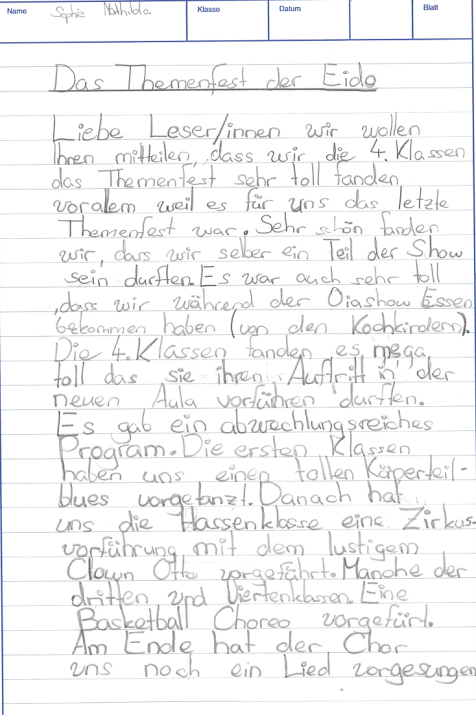 Name Sophie Mathilda Klasse Datum Blatt
Das Themenfest der Eide
Liebe Leser/innen wir wollen
Ihnen mitteilen, dass wir die 4. Klassen
das Themenfest sehr toll fanden
voralem weil es für uns das letzte
Themenfest war. Sehr schön fanden
wir, dass wir selber ein Teil der Show
sein durften. Es war auch sehr toll
, dass wir während der Diashow Essen
bekommen haben (von den Kochkindern).
Die 4. Klassen fanden es mega
toll das sie ihren Auftritt in der
neuen Aula vorführen durften.
Es gab ein abwechlungsreiches
Program. Die ersten Klassen
haben uns einen tollen Körperteil-
blues vorgetanzt. Danach hat
uns die Hassenklasse eine Zirkus-
vorführung mit dem lustigem
Clown Otto vorgeführt. Manche der
dritten und Viertenklassen. Eine
Basketball Choreo vorgefürt.
Am Ende hat der Chor
uns noch ein Lied vorgesungen